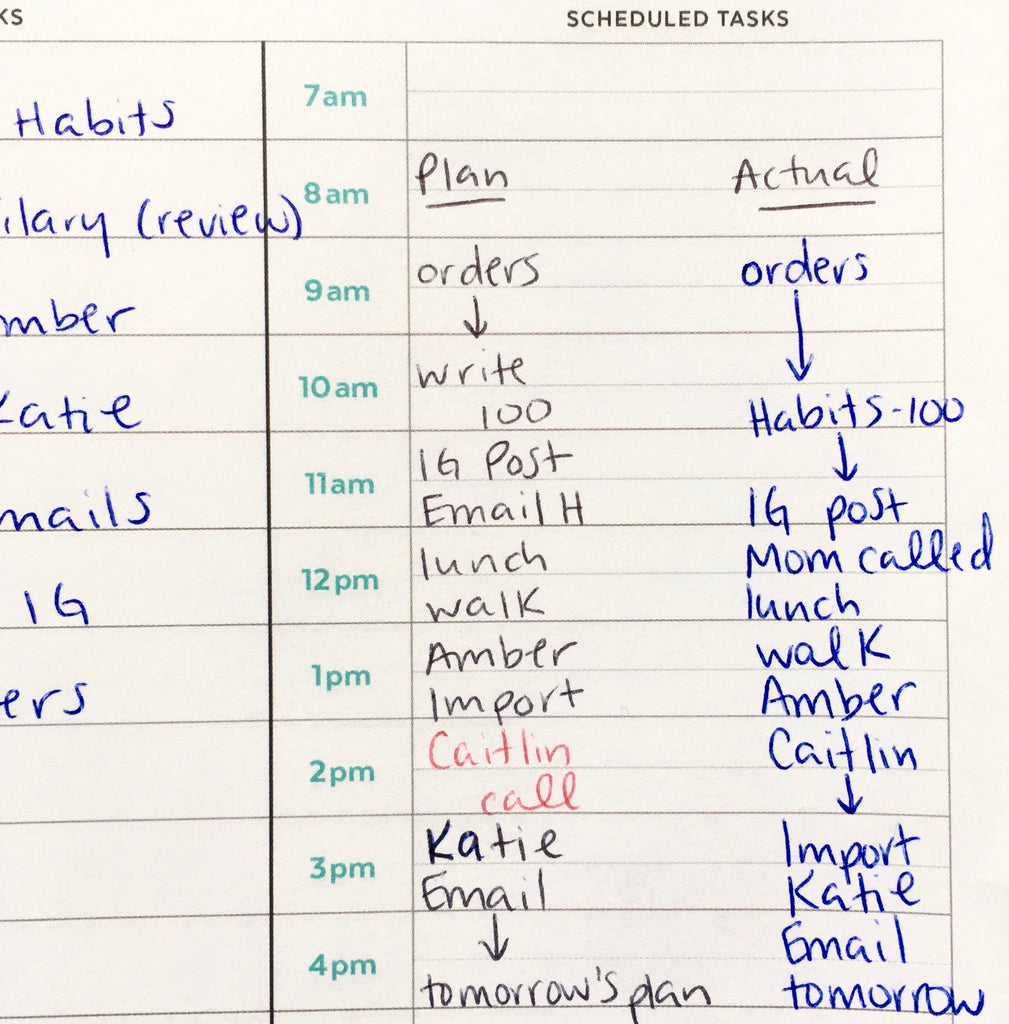 KS SCHEDULED TASKS
7am
Habits
Plan Actual
8am
ilary (review)
orders orders
9am
mber
write
10am
100 Habits-100
Katie
IG Post
11am
Email H IG post
mails
lunch Mom called
12pm
walk lunch
IG
Amber walk
1pm
Import Amber
ers
Caitlin Caitlin
2pm
call
Katie Import
3pm
Email Katie
Email
4pm
tomorrow's plan tomorrow